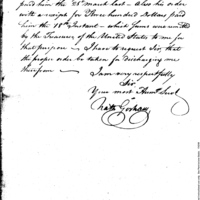 paid him the 25th march last - Also his order
with a receipt for Three hundred Dollars paid
him the 18th Instant - which sums were remitted
by the Treasurer of the United States to me for
that purpose - I have to request Sir, that
the proper order be taken for discharging me
therefrom
I am very respectfully
Sir
Your most Humb Servt
Nath Gorham